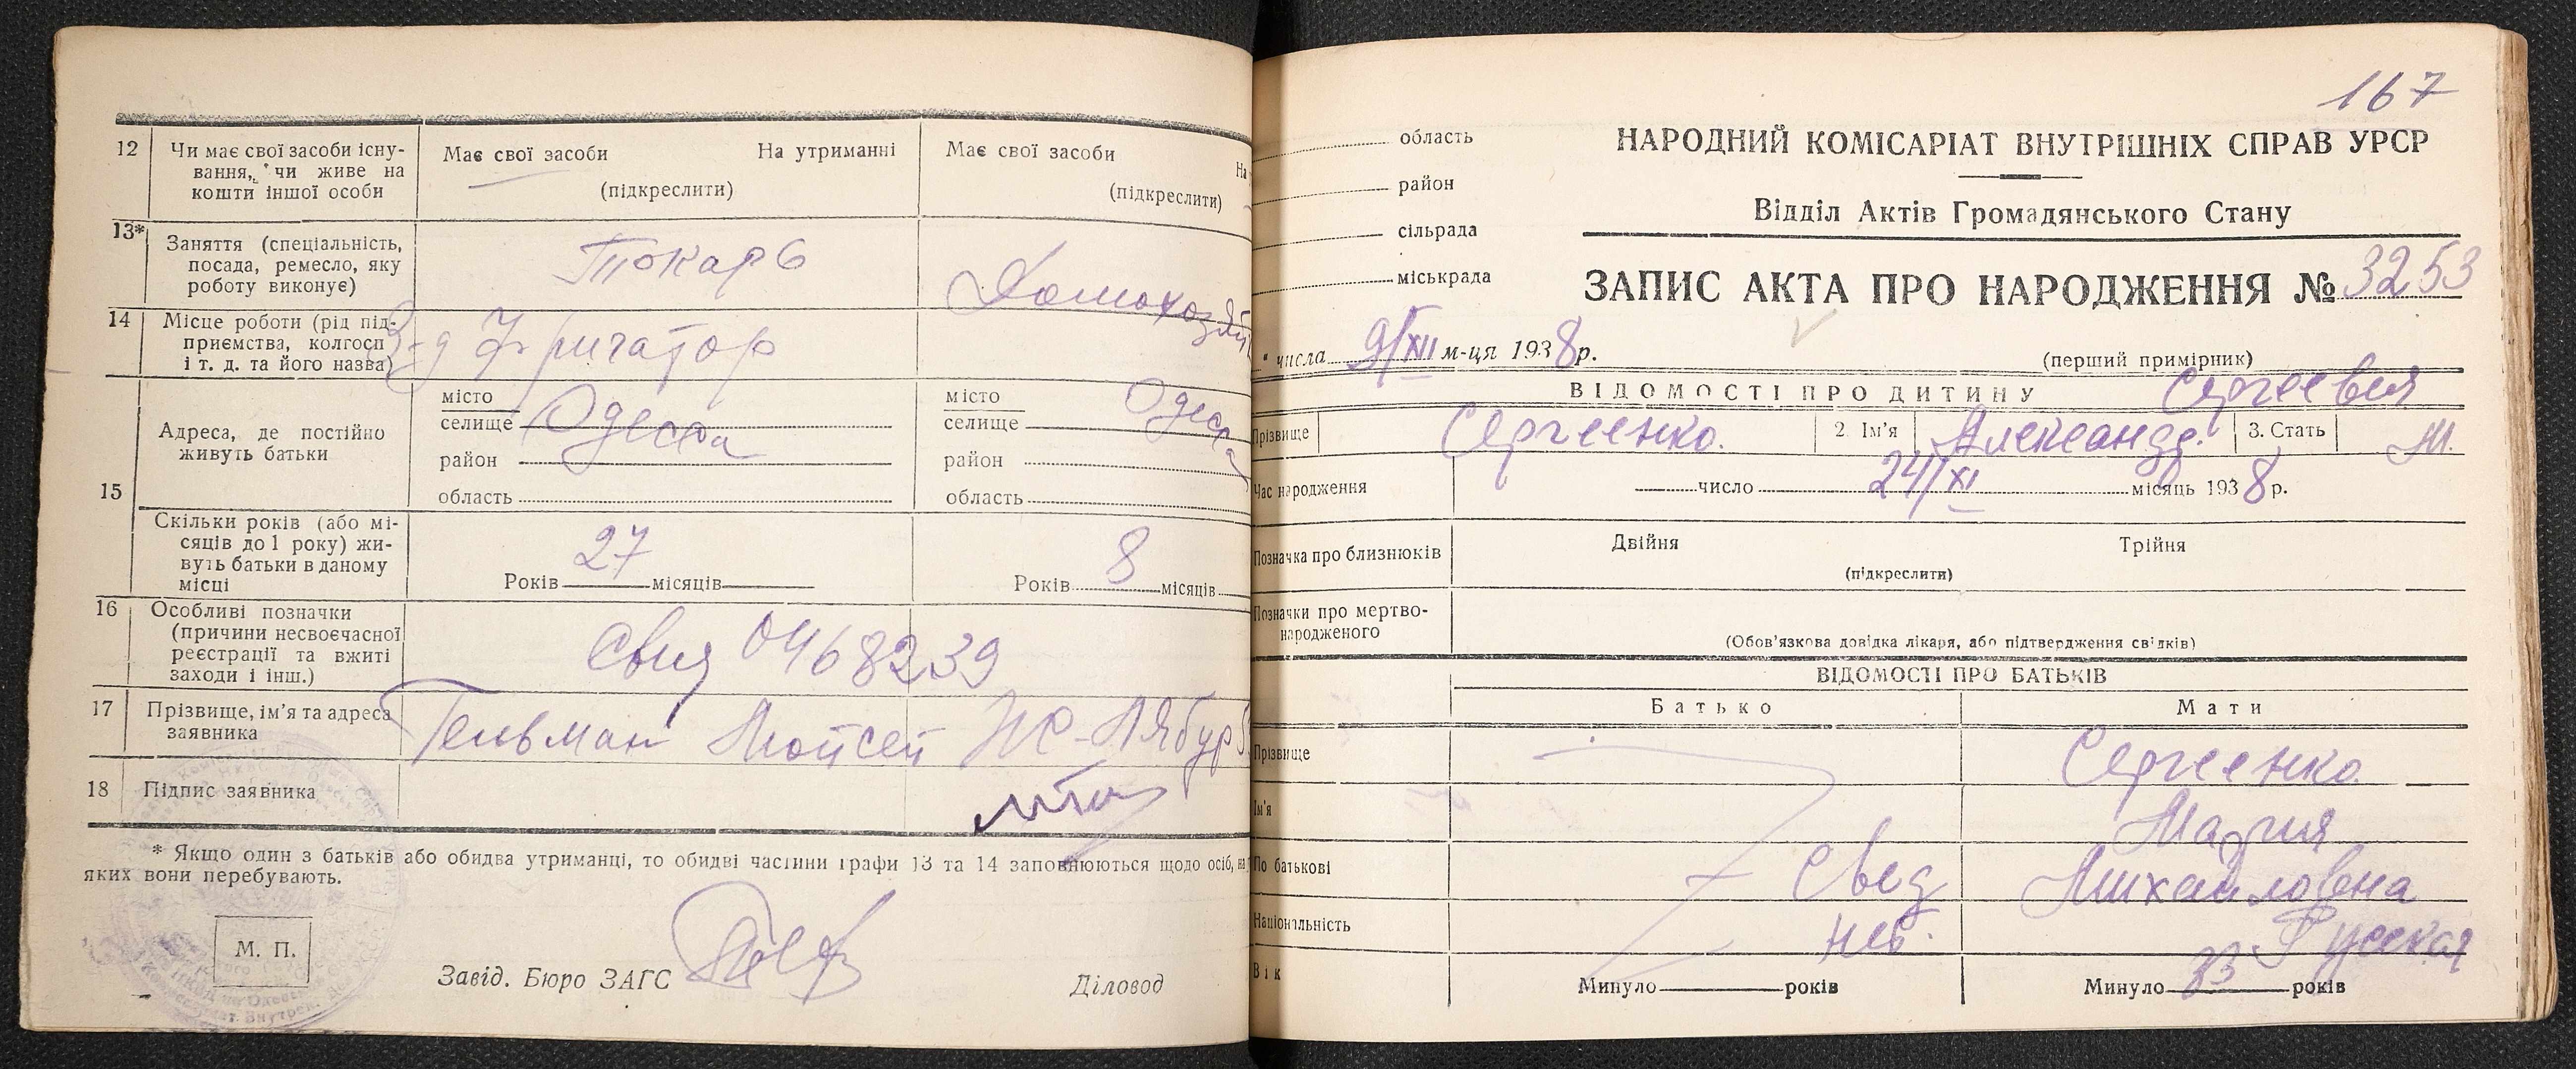 12 Чи має свої засоби існу-
вання, чи живе на
кошти іншої особи
Має свої засоби На утриманні
(підкреслити)
Має свої засоби На
(підкреслити)
13* Заняття (спеціальність,
посада, ремесло, яку
роботу виконує)
Токарь
Домохозяй
14 Місце роботи (рід під-
приємства, колгосп
і т. д. та його назва)
З-д Фригатор
15 Адреса, де постійно
живуть батьки
місто
селище Одесса
район
область
місто
селище Одесса
район
область
Скільки років (або мі-
сяців до 1 року) жи-
вуть батьки в даному
місці
Років 27 місяців
Років 8 місяців
16 Особливі позначки
(причини несвоєчасної
реєстрації та вжиті
заходи і інш.)
Свид 0468239
17 Прізвище, ім'я та адреса
заявника
Гельман Мойсей
18 Підпис заявника
* Якщо один з батьків або обидва утриманці, то обидві частини графи 13 та 14 заповнюються щодо осіб, на
яких вони перебувають.
М. П.
Завід. Бюро ЗАГС
Діловод
167
область
район
сільрада
міськрада
НАРОДНИЙ КОМІСАРІАТ ВНУТРІШНІХ СПРАВ УРСР
Відділ Актів Громадянського Стану
ЗАПИС АКТА ПРО НАРОДЖЕННЯ № 3253
" числа 9/XII м-ця 1938 р.
(перший примірник)
ВІДОМОСТІ ПРО ДИТИНУ
Сергеевич
Прізвище Сергеенко. 2. Ім'я Александр. 3. Стать М.
Час народження
число 24/XI місяць 1938 р.
Позначка про близнюків
Двійня Трійня
(підкреслити)
Позначки про мертво-
народженого
(Обов'язкова довідка лікаря, або підтвердження свідків)
ВІДОМОСТІ ПРО БАТЬКІВ
Батько Мати
Прізвище Сергеенко
Ім'я Мария
По батькові Свед Михайловна
Національність нет. Русская
Вік Минуло років Минуло 33 років